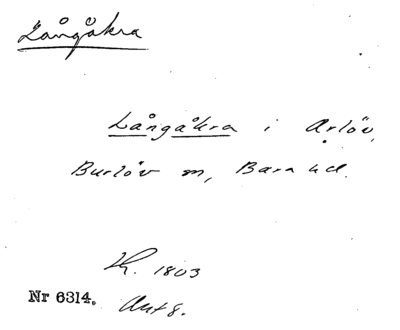 Långåkra
Långåkra i Arlöv,
Burlöv sn, Bara hd.
K. 1803
Nr 6314. Akt 8.